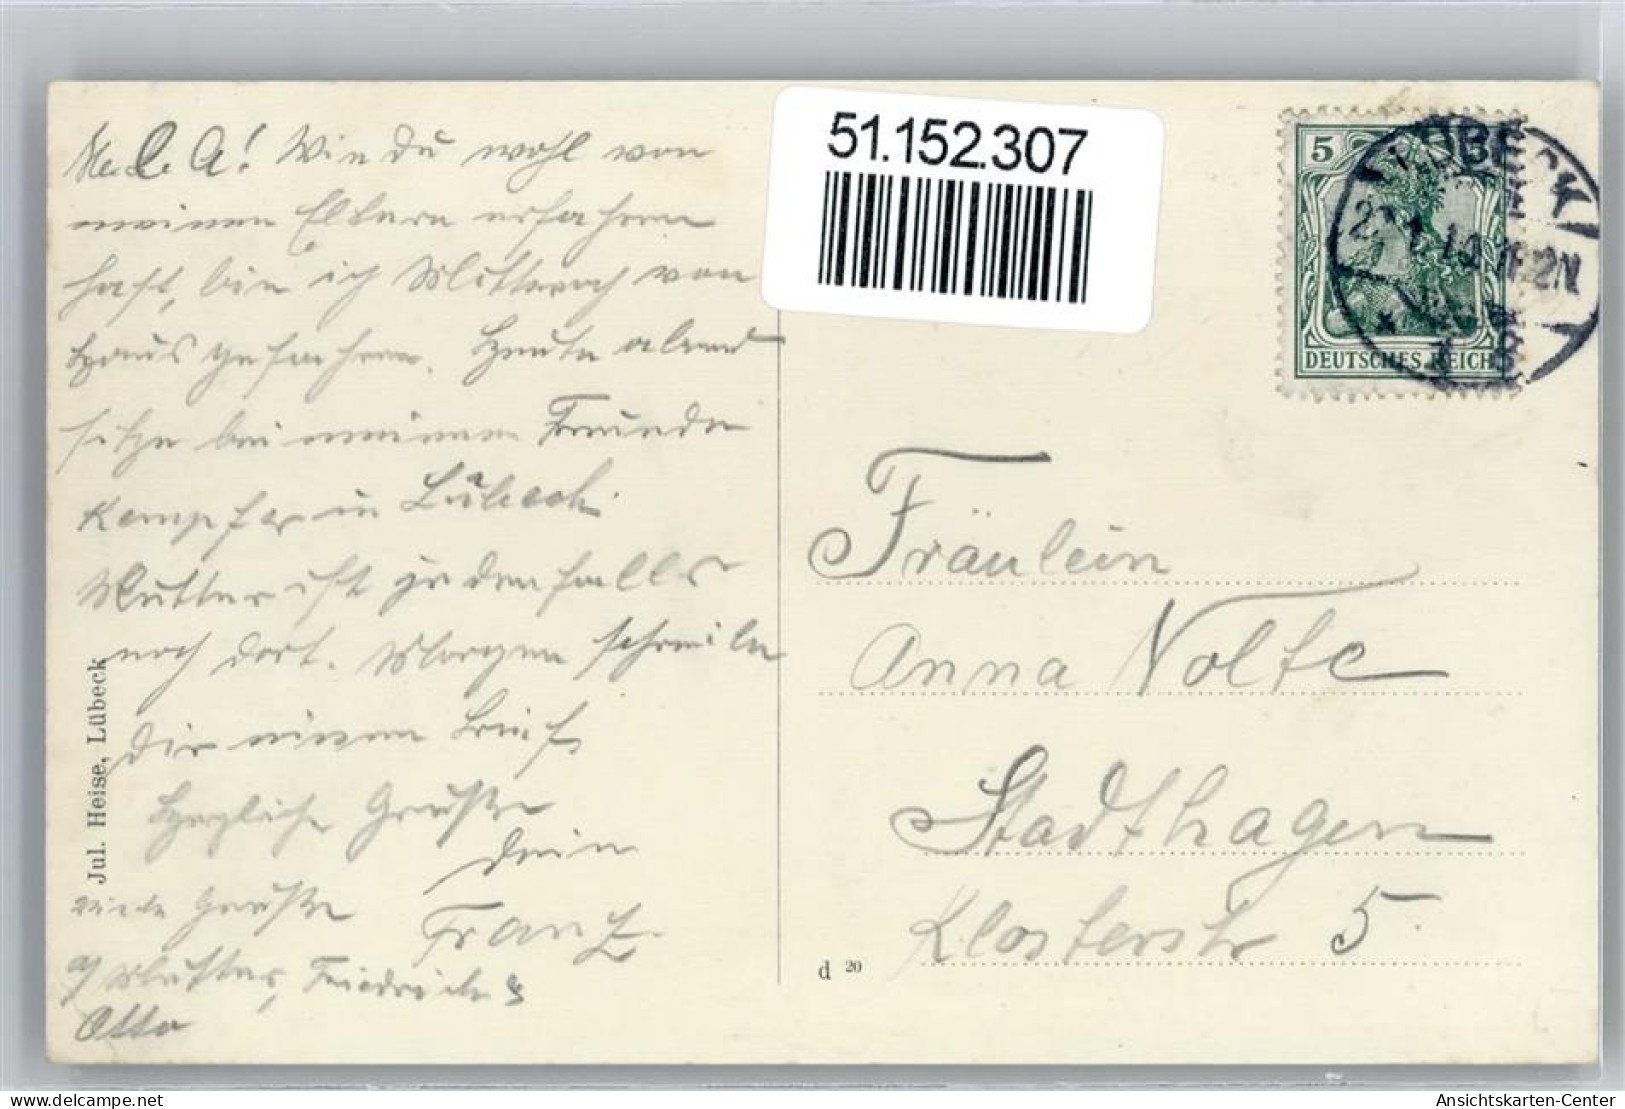 M. l. A! Wie du wohl von
meinen Eltern erfahren
hast, bin ich Mittwoch von
Haus gefahren. Heute abend
sitze bei meinem Freunde
Kempfer in Lübeck.
Mutter ist jedenfalls
noch dort. Morgen schreibe
Dir einen Brief.
Herzliche Grüße
Dein
Franz.
viele Grüße
a/ Mutter, Friedrich &
Otto
Jul. Heise, Lübeck
51.152.307
5
DEUTSCHES REICH
LÜBECK
Fräulein
Anna Nolte
Stadthagen
Klosterstr 5.
d 20
delcampe.net
Ansichtskarten-Center